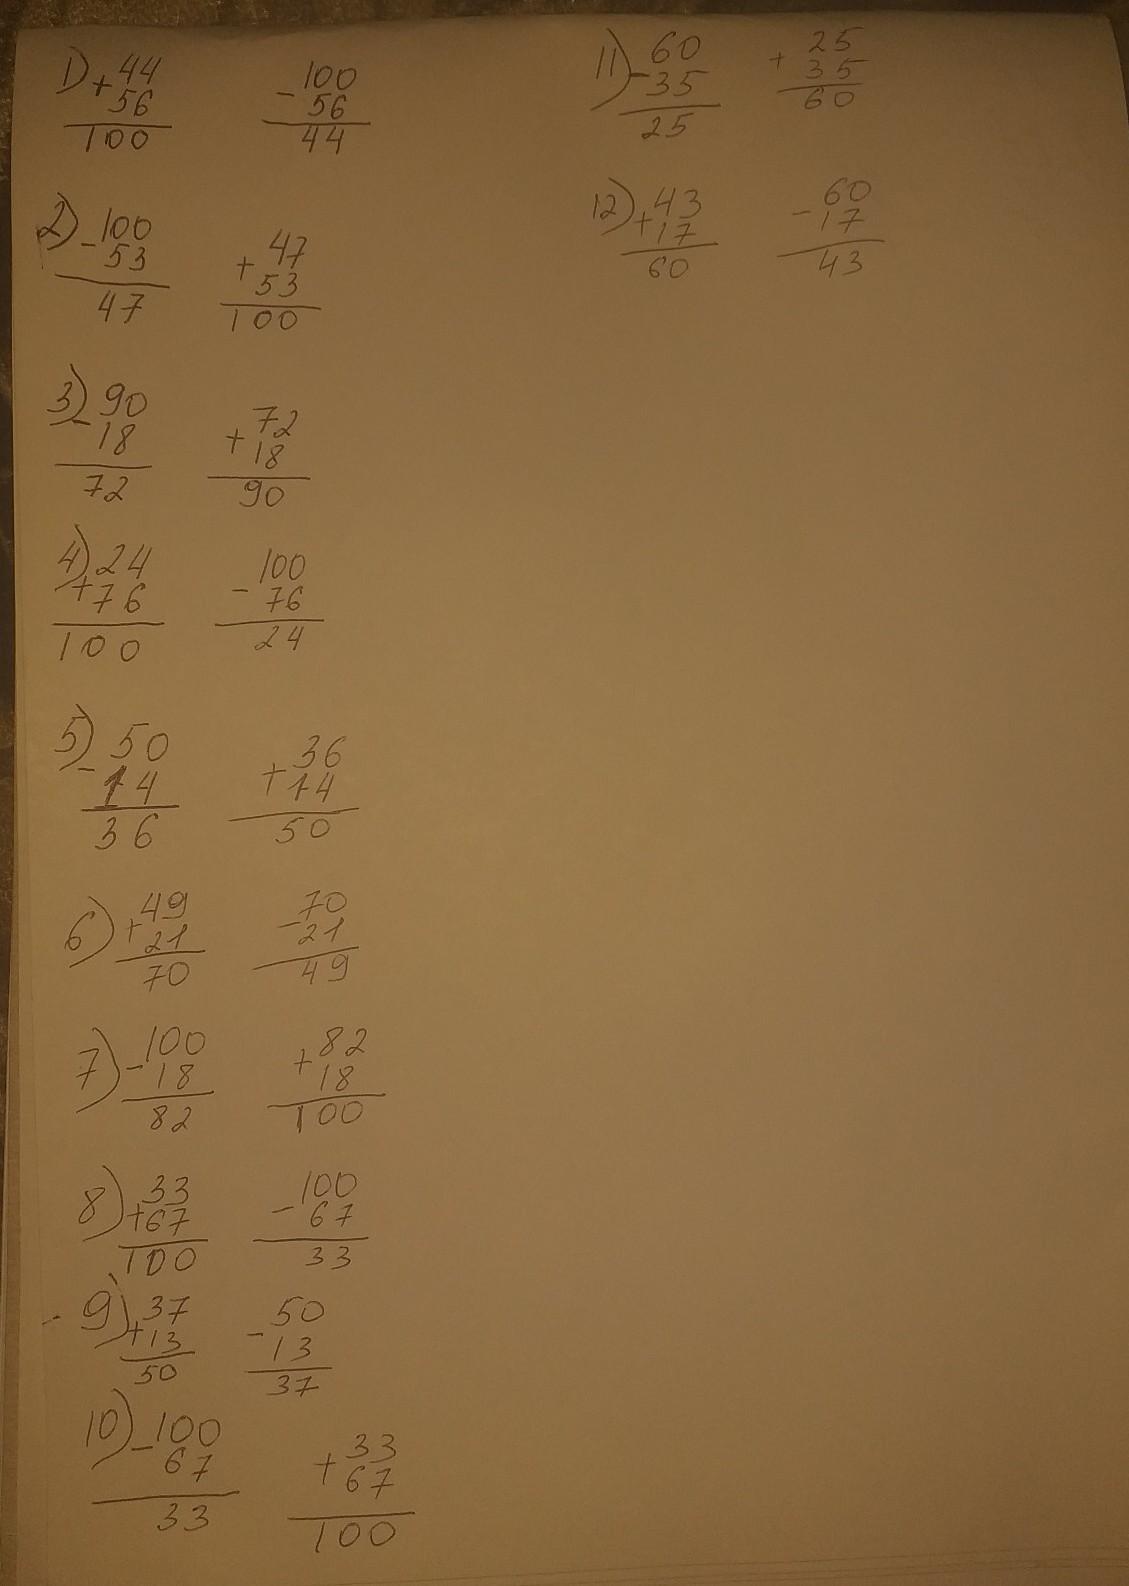 1) + 44
56
100
- 100
56
44
2) - 100
53
47
+ 47
53
100
3) - 90
18
72
+ 72
18
90
4) + 24
76
100
- 100
76
24
5) - 50
14
36
+ 36
14
50
6) + 49
21
70
- 70
21
49
7) - 100
18
82
+ 82
18
100
8) + 33
67
100
- 100
67
33
9) + 37
13
50
- 50
13
37
10) - 100
67
33
+ 33
67
100
11) - 60
35
25
+ 25
35
60
12) + 43
17
60
- 60
17
43